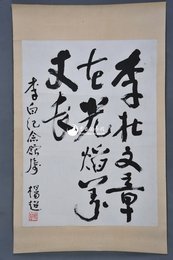 李杜文章
在光焰万
丈长
李白纪念馆属
杨超